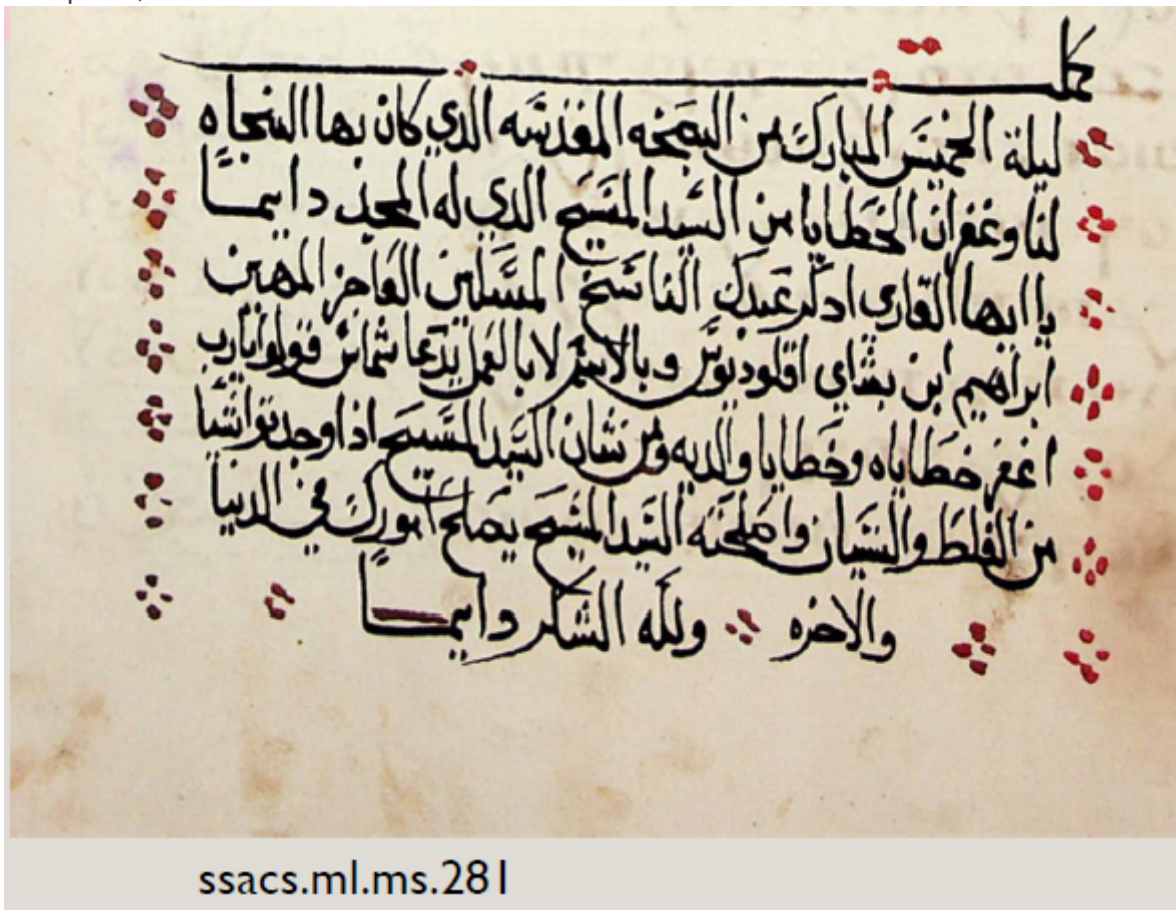 كمل
ليلة الخميس المبارك من البصخه المقدسه الذي كان بها النجاه
لنا وغفران الخطايا من السيد المسيح الذي له المجد دايمـــا
يا ايها القاري ادكر عبدك الناسخ المسكين العاجز المهين
ابراهيم ابن بشاي اقلوديوس وبالاسم لا بالفعل يدعا شماس قولوا يارب
اغفر خطاياه وخطايا والديه ومن شان السيد المسيح ادا وجدتوا شيا
من الغلط والنسيان واصلحته السيد المسيح يصلح امورك في الدنيا
والاخره ولله الشكر دايمـــا
ssacs.ml.ms.281